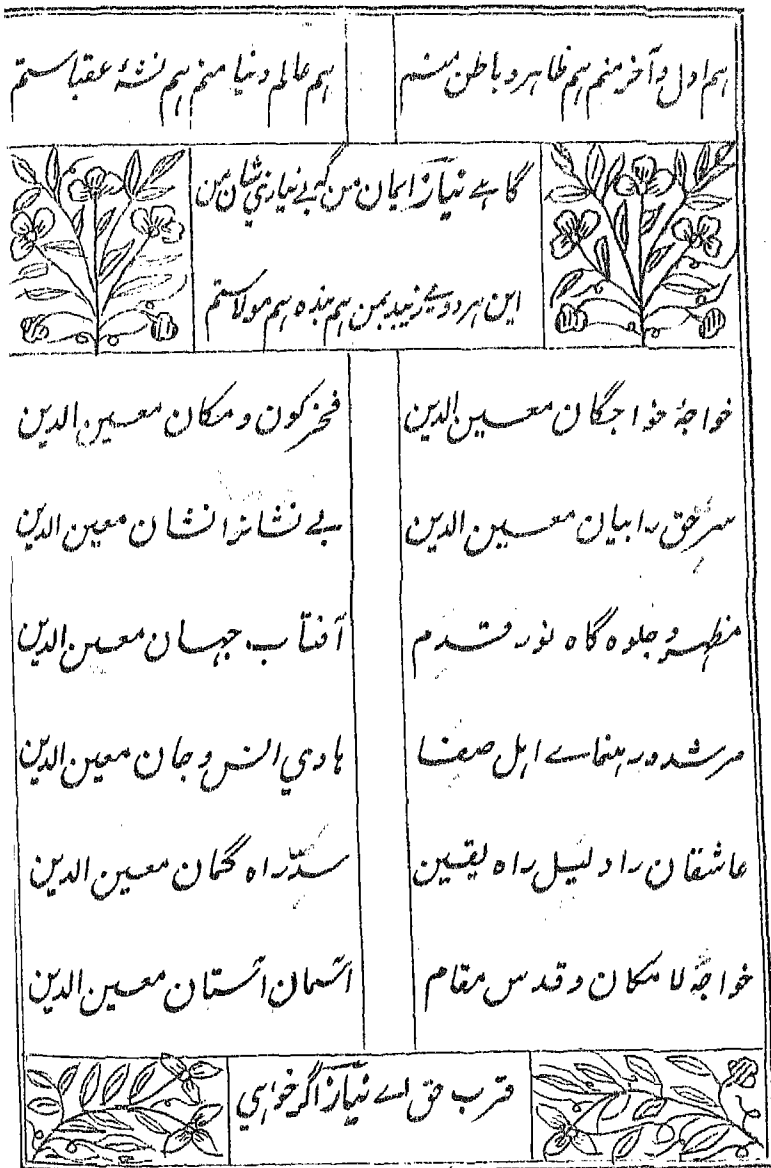 ہم اول و آخر منم ہم ظاہر و باطن منم ہم عالم دنیا منم ہم نشۂ عقباستم
گاہے نیازؔ ایمان من گہ بے نیازی شان من
این ہر دو مے زیبد بمن ہم بندہ ہم مولاستم
خواجۂ خواجگان معین الدین فخر کون و مکان معین الدین
سرِّ حق را بیان معین الدین بے نشانرا نشان معین الدین
مظہر و جلوہ گاہ نور قدم آفتاب جہان معین الدین
مرشد و رہنماے اہل صفا ہادی انس و جان معین الدین
عاشقان را دلیل راہ یقین سدّ راہ گمان معین الدین
خواجۂ لامکان و قدس مقام آسمان آستان معین الدین
قرب حق اے نیازؔ اگر خواہی